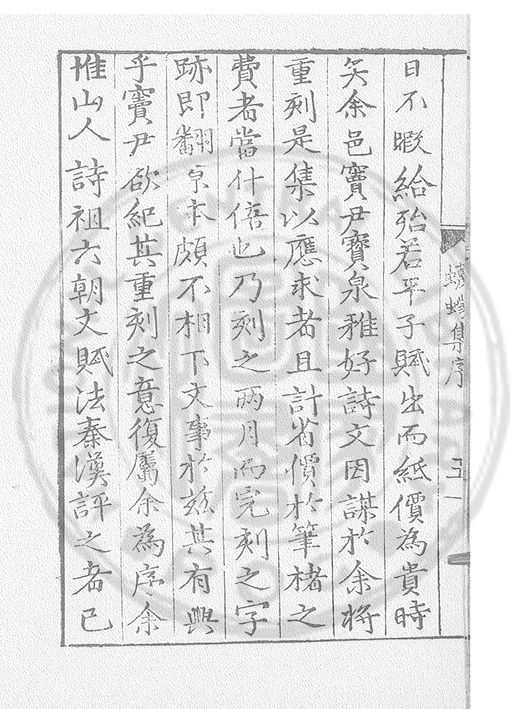 蠛蠓集序
五
日不暇給殆若平子賦出而紙價為貴時
矣余邑竇尹寶泉雅好詩文因謀於余將
重刻是集以應求者且計省價於筆楮之
費者當什倍也乃刻之兩月而完刻之字
跡即翻京本頗不相下文事於玆其有興
乎竇尹欲紀其重刻之意復屬余為序余
惟山人詩祖六朝文賦法秦漢評之者已